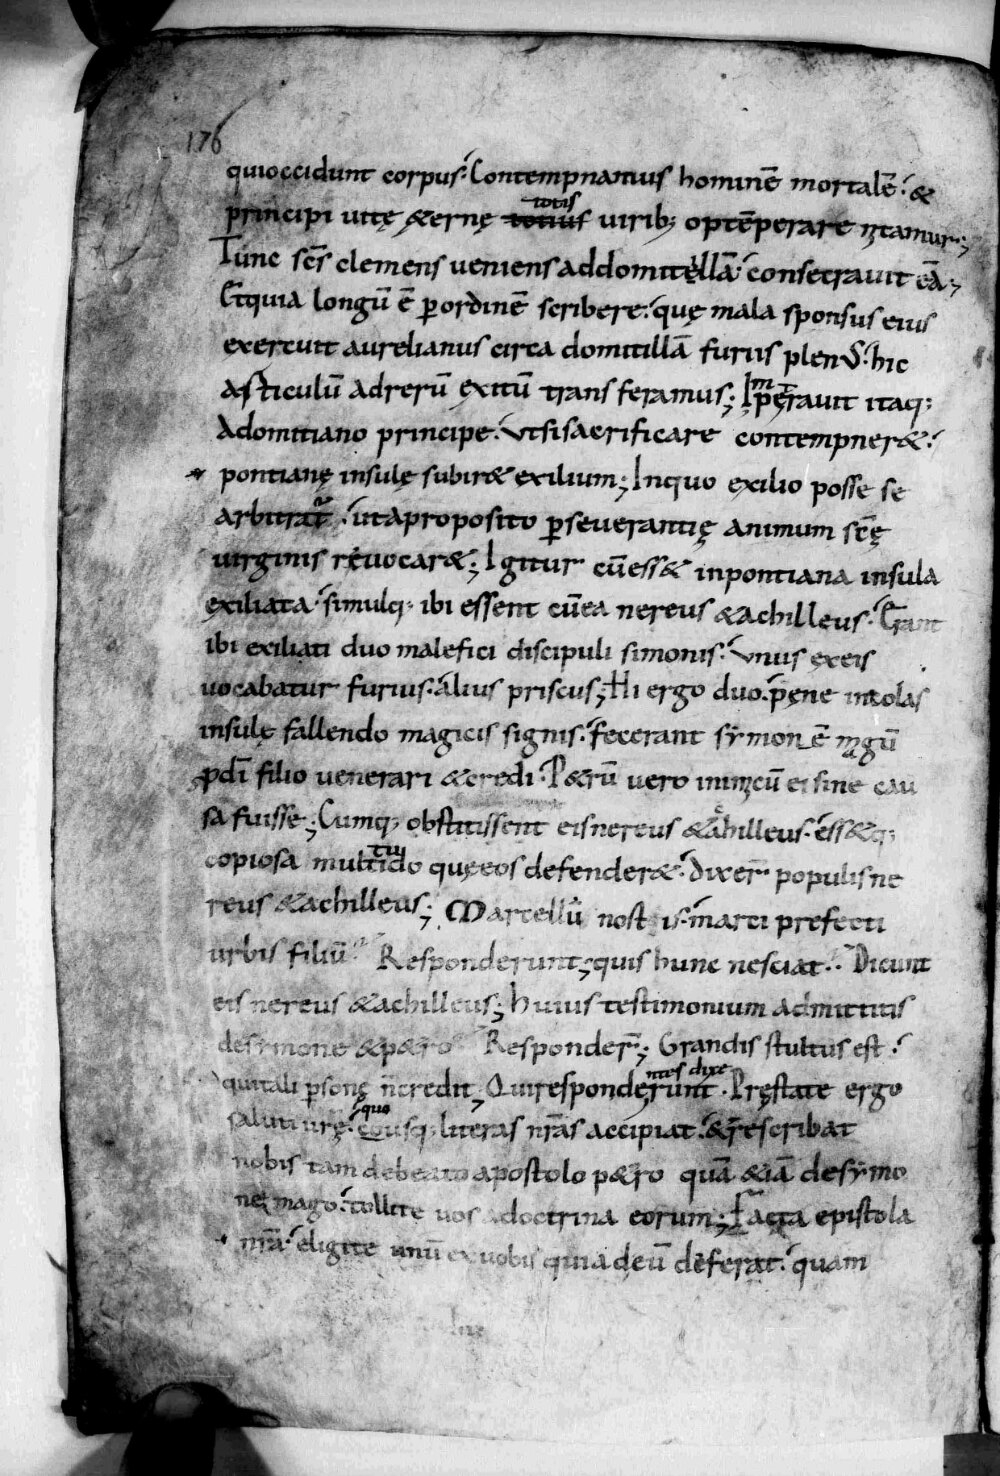 176
qui occidunt corpus. Contempnamus hominē mortalē. &
principi uitę &ernę totiuſ totis uirib; optēperare nitamur;
Tunc scs̄ clemens ueniens ad domitellā. consecrauit eā;
Et quia longū ē p ordinē scribere. quę mala sponsus eius
exercuit aurelianus circa domitillā furiis plenus. hic
asticulū ad rerū exitū transferamus; Imperauit itaq;
Adomitiano principe. ut si sacrificare contempner&.
pontianę insulę subir& exilium; In quo exilio posse se
arbitrat̄. ut a proposito pseuerantię animum scę̄
uirginis reuocar&; Igitur cū ess& in pontiana insula
exiliata. simulq; ibi essent cū ea nereus & achilleus. Erant
ibi exiliati duo malefici discipuli simonis. Vnus ex eis
uocabatur furius. alius priscus; Hi ergo duo. pęne incolas
insulę fallendo magicis signis. fecerant symonē magū
p dī filio uenerari & credi. P&rū uero inimicū ei sine cau
sa fuisse; Cumq; obstitissent eis nereus & achilleus. ess&q;
copiosa multitudo quę eos defender&. Dixer̄ populis ne
reus & achilleus; Marcellū nostis. marci prefecti
urbis filiū. Responderunt; quis hunc nesciat. Dicunt
eis nereus & achilleus; huius testimonium admittitis
de simone & p&ro Responder̄; Grandis stultus est.
qui tali psonę n̄ credit; Qui respondęrunt ntes dixe. Pręstate ergo
saluti urę̄. quo eousq; literas nrā̄s accipiat. & rescribat
nobis tam de beato apostolo p&ro quā &iā de symo
ne mago. tollite uos a doctrina eorum; Facta epistola
nrā. eligite unū ex uobis qui adeū deferat. quam